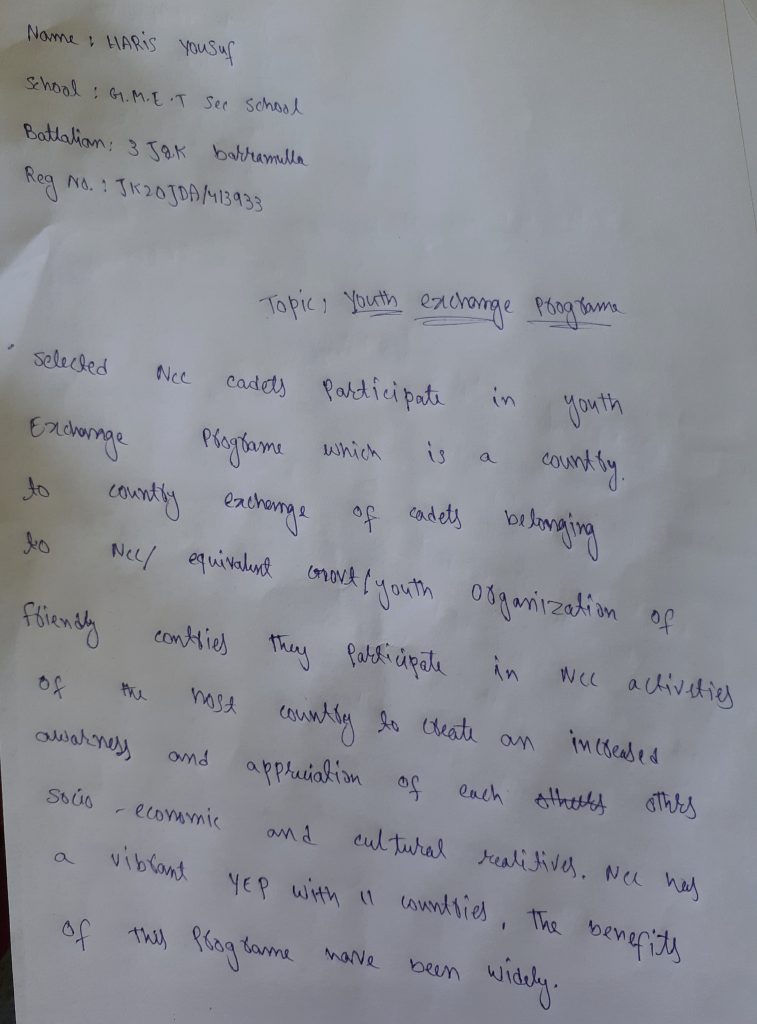 Name : HARis Yousuf
School : G.M.E.T Sec School
Battalian: 3 J&K barramulla
Reg No. : JK20JDA/413933
Topic, Youth exchange Programe
• Selected Ncc cadets Participate in youth
Exchange Programe which is a country.
to country exchange of cadets belonging
to Ncc/ equivalent Govt/youth organization of
friendly contries they Participate in Ncc activities
of the host country to create an increased
awarness and appriciation of each others othrs
Socio - economic and cultural realitives. Ncc has
a vibrant YEP with 11 countries, The benefits
of this Programe have been widely.